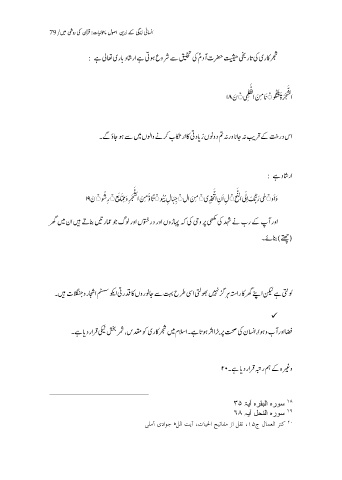 انسانی زندگی کے زریں اصول ماحولیات: قرآن کی روشنی میں/ 79
شجر کاری کی تاریخی حیثیت حضرت آدمؑ کی تخلیق سے شروع ہوتی ہے ارشاد باری تعالی ہے :
اس درخت کے قریب نہ جانا ورنہ تم دونوں زیادتی کا ارتکاب کرنے والوں میں سے ہو جاؤ گے۔
ارشاد ہے :
اور آپ کے رب نے شہد کی مکھی پر وحی کی کہ پہاڑوں اور درختوں اور لوگ جو عمارتیں بناتے ہیں ان میں گھر
(چھتے) بنائے۔
لوٹتی ہے لیکن اپنے گھر کا راستہ ہرگز نہیں بھولتی اسی طرح بہت سے جانوروں کا قدرتی ایکو سسٹم اشجار و جنگلات ہیں۔
✔
فضا اور آب و ہوا پر انسان کی صحت پر بڑا اثر ہوتا ہے۔ اسلام میں شجر کاری کو مقدس، ثمر بخش نیکی قرار دیا ہے۔
وغیرہ کے ہم رتبہ قرار دیا ہے۔ ۲۰
۱۸ سورہ البقرہ آیہ ۳۵
۱۹ سورہ النحل آیہ ۶۸
۲۰ کنز العمال ج۱۵، نقل از مفاتیح الحیات، آیت اللہ جوادی آملی